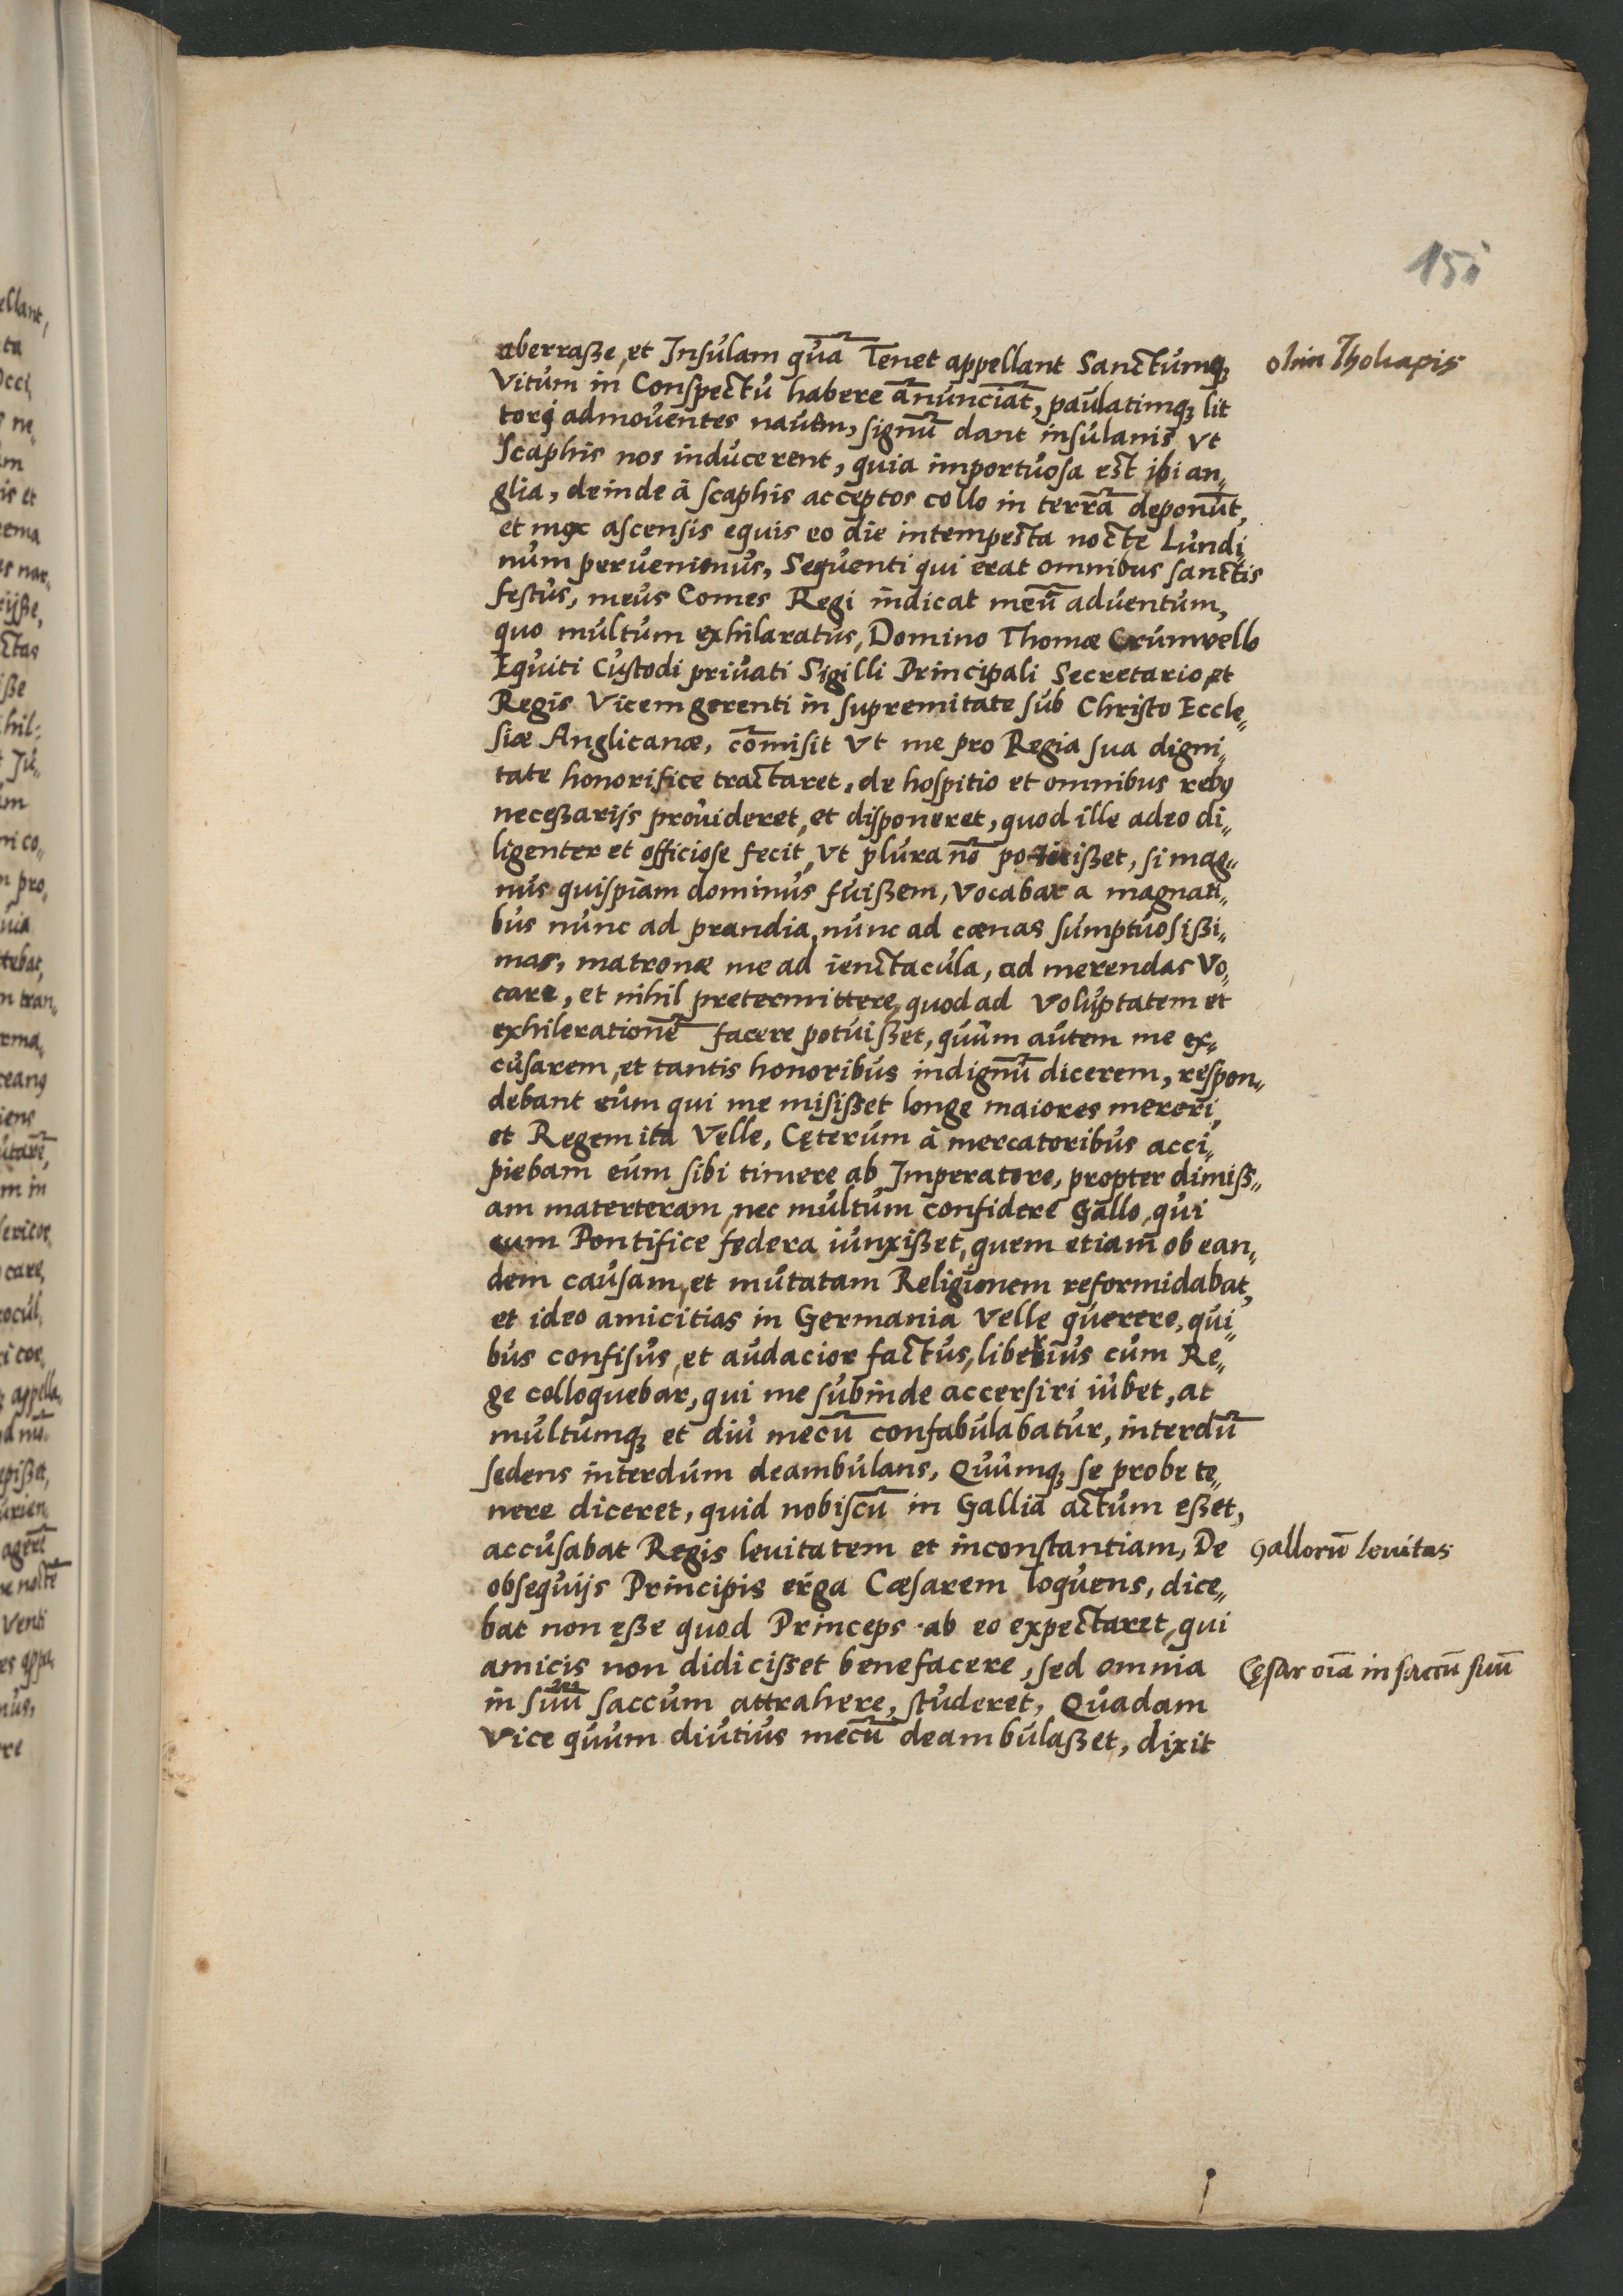 151
aberraße, et Insulam quā Tenet appellant Sanctumq;
olim Tholiapis
Vitum in Conspectu habere ānunciāt, paulatimq; lit
tori admouentes nauem, signū dant insulanis vt
Scaphis nos inducerent, quia importuosa est ibi an„
glia, deinde à scaphis acceptos collo in terrā deponūt,
et mox ascensis equis eo die intempesta nocte Lundi„
num peruenimus, Sequenti qui erat omnibus sanctis
festus, meus Comes Regi indicat meū aduentum,
quo multum exhilaratus, Domino Thomæ Crumwello
Equiti Custodi priuati Sigilli Principali Secretario, et
Regis Vicem gerenti in supremitate sub Christo Eccle„
siæ Anglicanæ, cōmisit vt me pro Regia sua digni„
tate honorifice tractaret, de hospitio et omnibus rebꝰ
neceßarijs prouideret, et disponeret, quod ille adeo di„
ligenter et officiose fecit, vt plura nō potuißet, si mag„
nus quispiam dominus fuißem, Vocabar a magnati„
bus nunc ad prandia, nunc ad cœnas sumptuosißi„
mas, matronæ me ad ienctacula, ad merendas Vo„
care, et nihil pretermittere, quod ad voluptatem et
exhilerationē facere potuißet, quum autem me ex„
cusarem, et tantis honoribus indignū dicerem, respon„
debant eum qui me misißet longe maiores mereri,
et Regem ita Velle, Cęterum à mercatoribus acci„
piebam eum sibi timere ab Imperatore, propter dimiß„
am materteram, nec multum confidere Gallo, qui
cum Pontifice federa iunxißet, quem etiam ob ean„
dem causam, et mutatam Religionem reformidabat,
et ideo amicitias in Germania Velle querere, qui„
bus confisus, et audacior factus, liberius cum Re„
ge colloquebar, qui me subinde accersiri iubet, at
multumq; et diu mecū confabulabatur, interdū
sedens interdum deambulans, Quumq; se probe te„
nere diceret, quid nobiscū in Gallia actum eßet,
accusabat Regis leuitatem et inconstantiam, De
Gallorū leuitas
obsequijs Principis erga Cæsarem loquens, dice„
bat non eße quod Princeps ab eo expectaret, qui
amicis non didicißet benefacere, sed omnia
Cęsar oīa in saccū suū
in suū saccum attrahere, studeret, Quadam
Vice quum diutius mecū deambulaßet, dixit